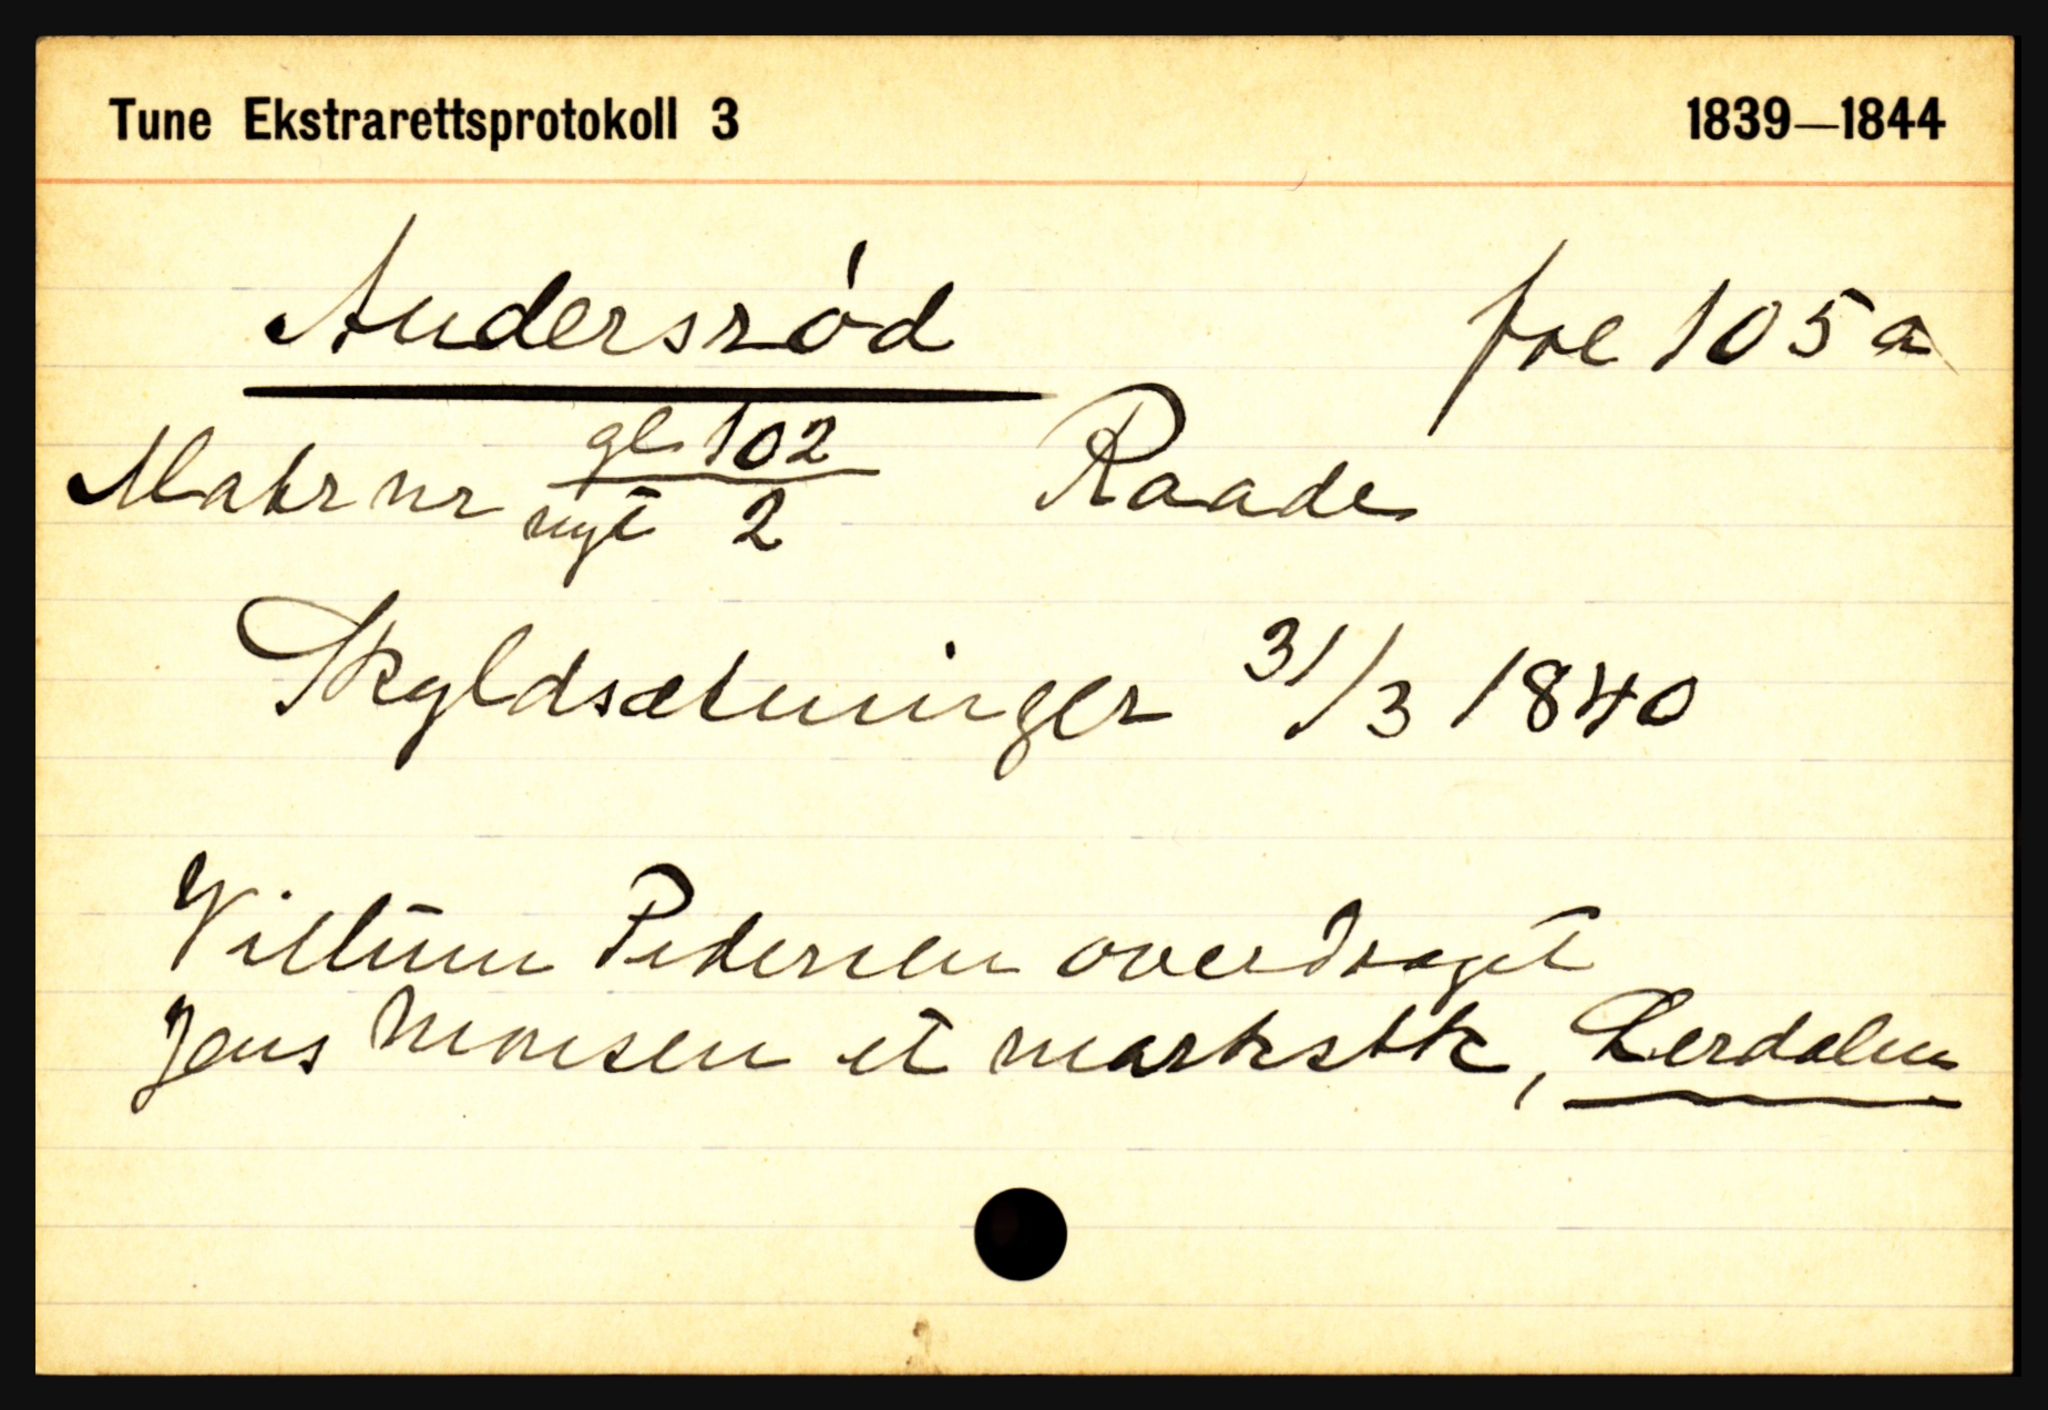 Tune Ekstrarettsprotokoll 3 1839—1844
Andersród fol 105a
Matr nr gl 102 Raade
nyt 2
Skyldsætninger 31/3 1840
Villum Pedersen overdraget
Jens Monsen et markstk, Lerdalen